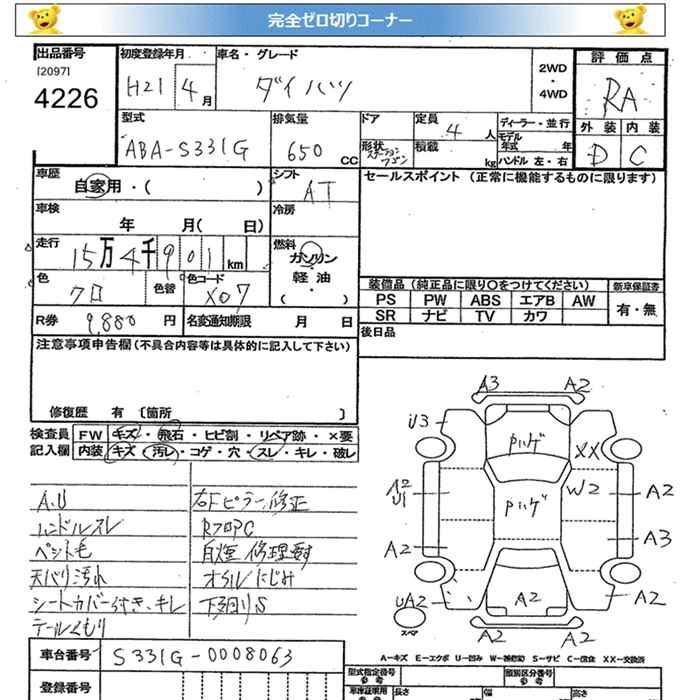 完全ゼロ切りコーナー
出品番号
[2097]
4226
初度登録年月
H21 4月
車名・グレード
ダイハツ
2WD
・
4WD
評価点
RA
外装 内装
D C
型式
ABA-S331G
排気量
650 cc
ドア
定員
4人
ディーラー・並行
モデル年式 年
形状
ステーションワゴン
積載
kg
ハンドル 左・右
車歴
自家用・( )
シフト
AT
セールスポイント (正常に機能するものに限ります)
車検
年 月( 日)
冷房
走行
15万4千901km
燃料
ガソリン
軽油
( ・ )
色
クロ
色替
色コード
X07
装備品 (純正品に限り○をつけてください)
新車保証書
PS PW ABS エアB AW
SR ナビ TV カワ
有・無
R券 9,880円
名変通知期限 月 日
後日品
注意事項申告欄 (不具合内容等は具体的に記入して下さい)
修復歴 有 [箇所 ]
検査員 FW キズ・飛石・ヒビ割・リペア跡・×要
記入欄 内装 キズ・汚レ・コゲ・穴・スレ・キレ・破レ
A.U
ハンドルスレ
ペット毛
天バリ汚れ
シートカバー付き、キレ
テールくもり
右Fピラー修正
RフロPC
オイルにじみ
下廻りS
A3 A2
U3
Pハゲ
XX
A2
U1
Pハゲ
W2
A2
A2
A3
UA2
A2
A2
スペア
A2 A2
A-キズ E-エクボ U-凹み W-補修跡 S-サビ C-腐食 XX-交換済
車台番号 S331G-0008063
登録番号
型式指定番号
参考
類別区分番号
参考
車庫証明用
参考
長さ
幅
高さ